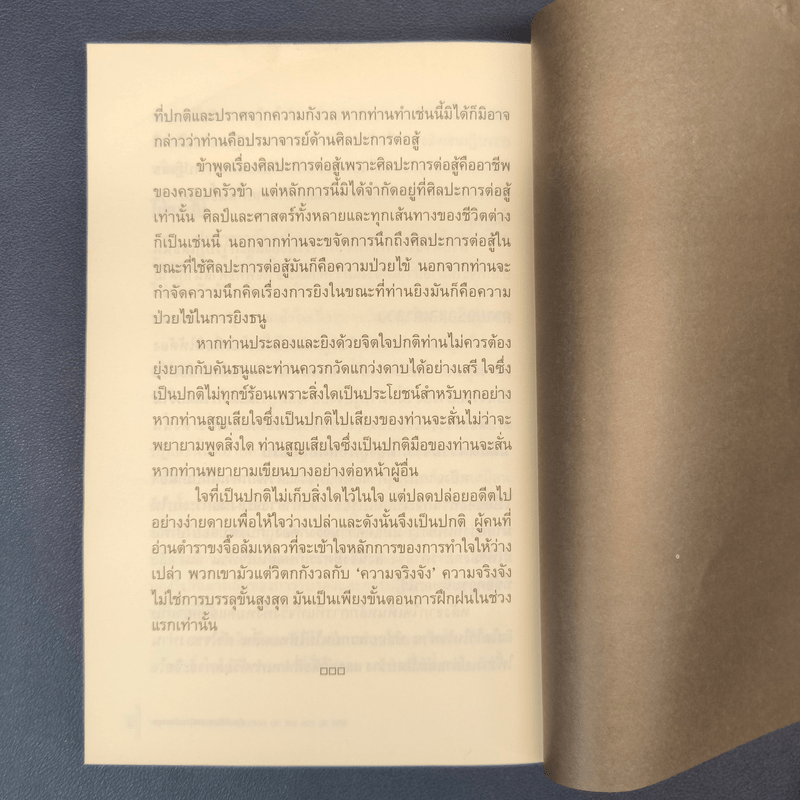 ที่ปกติและปราศจากความกังวล หากท่านทำเช่นนี้มิได้ก็มิอาจ
กล่าวว่าท่านคือปรมาจารย์ด้านศิลปะการต่อสู้
ข้าพูดเรื่องศิลปะการต่อสู้เพราะศิลปะการต่อสู้คืออาชีพ
ของครอบครัวข้า แต่หลักการนี้มิได้จำกัดอยู่ที่ศิลปะการต่อสู้
เท่านั้น ศิลป์และศาสตร์ทั้งหลายและทุกเส้นทางของชีวิตต่าง
ก็เป็นเช่นนี้ นอกจากท่านจะขจัดการนึกถึงศิลปะการต่อสู้ใน
ขณะที่ใช้ศิลปะการต่อสู้มันก็คือความป่วยไข้ นอกจากท่านจะ
กำจัดความนึกคิดเรื่องการยิงในขณะที่ท่านยิงมันก็คือความ
ป่วยไข้ในการยิงธนู
หากท่านประลองและยิงด้วยจิตใจปกติท่านไม่ควรต้อง
ยุ่งยากกับคันธนูและท่านควรกวัดแกว่งดาบได้อย่างเสรี ใจซึ่ง
เป็นปกติไม่ทุกข์ร้อนเพราะสิ่งใดเป็นประโยชน์สำหรับทุกอย่าง
หากท่านสูญเสียใจซึ่งเป็นปกติไปเสียงของท่านจะสั่นไม่ว่าจะ
พยายามพูดสิ่งใด ท่านสูญเสียใจซึ่งเป็นปกติมือของท่านจะสั่น
หากท่านพยายามเขียนบางอย่างต่อหน้าผู้อื่น
ใจที่เป็นปกติไม่เก็บสิ่งใดไว้ในใจ แต่ปลดปล่อยอดีตไป
อย่างง่ายดายเพื่อให้ใจว่างเปล่าและดังนั้นจึงเป็นปกติ ผู้คนที่
อ่านตำราขงจื๊อล้มเหลวที่จะเข้าใจหลักการของการทำใจให้ว่าง
เปล่า พวกเขามัวแต่วิตกกังวลกับ ‘ความจริงจัง’ ความจริงจัง
ไม่ใช่การบรรลุขั้นสูงสุด มันเป็นเพียงขั้นตอนการฝึกฝนในช่วง
แรกเท่านั้น